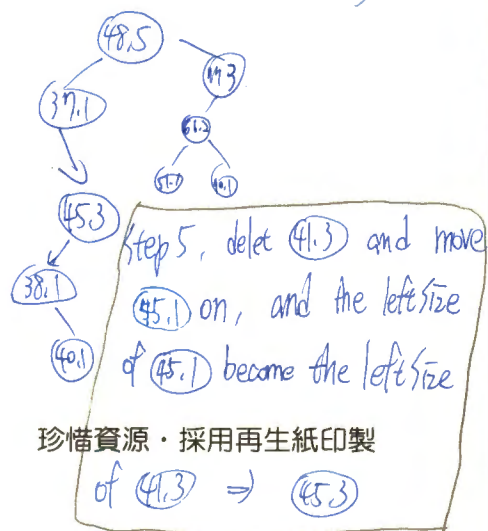 48.5
37.1
45.3
38.1
40.1
Step 5, delet 41.3 and move
45.1 on, and the left size
of 45.1 become the left size
珍惜資源・採用再生紙印製
of 41.3 ⇒ 45.3